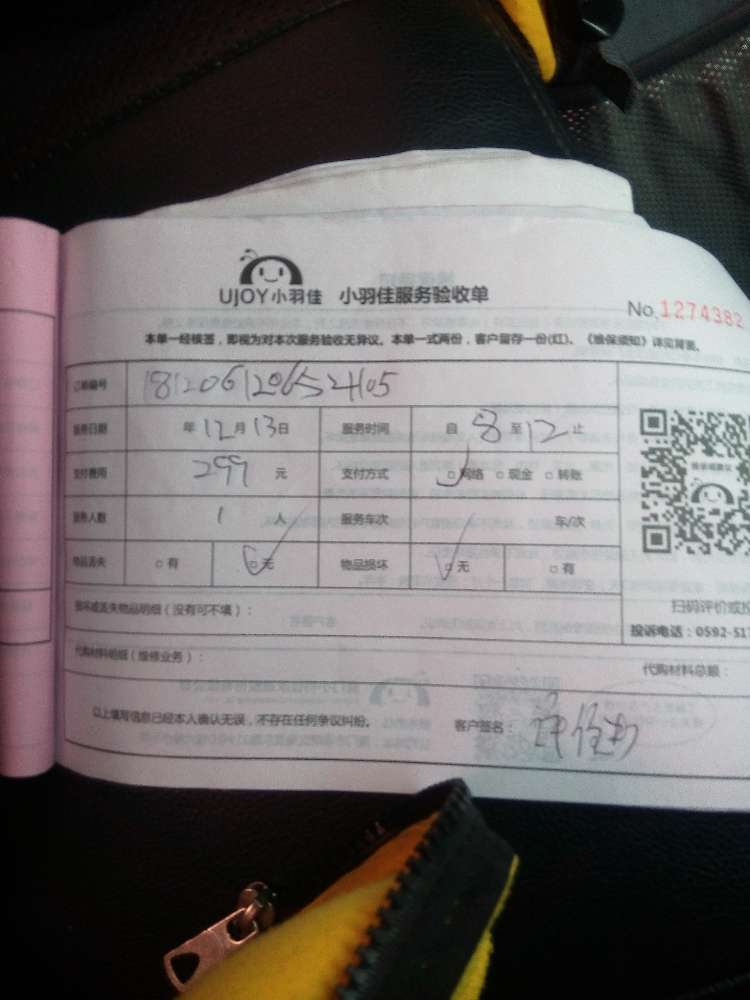 UJOY小羽佳 小羽佳服务验收单
No. 1274382
本单一经核签，即视为对本次服务验收无异议。本单一式两份，客户留存一份(红)。《维保须知》详见背面。
订单编号
服务日期 年12月13日 服务时间 自8至12止
支付费用 299元 支付方式 □网络 □现金 □转账
服务人数 1人 服务车次 车/次
物品丢失 □有 □无 物品损坏 □无 □有
损坏或丢失物品明细（没有可不填）：
扫码评价或投
投诉电话：0592-517
代购材料明细（维修业务）： 代购材料总额：
以上填写信息已经本人确认无误，不存在任何争议纠纷。 客户签名：